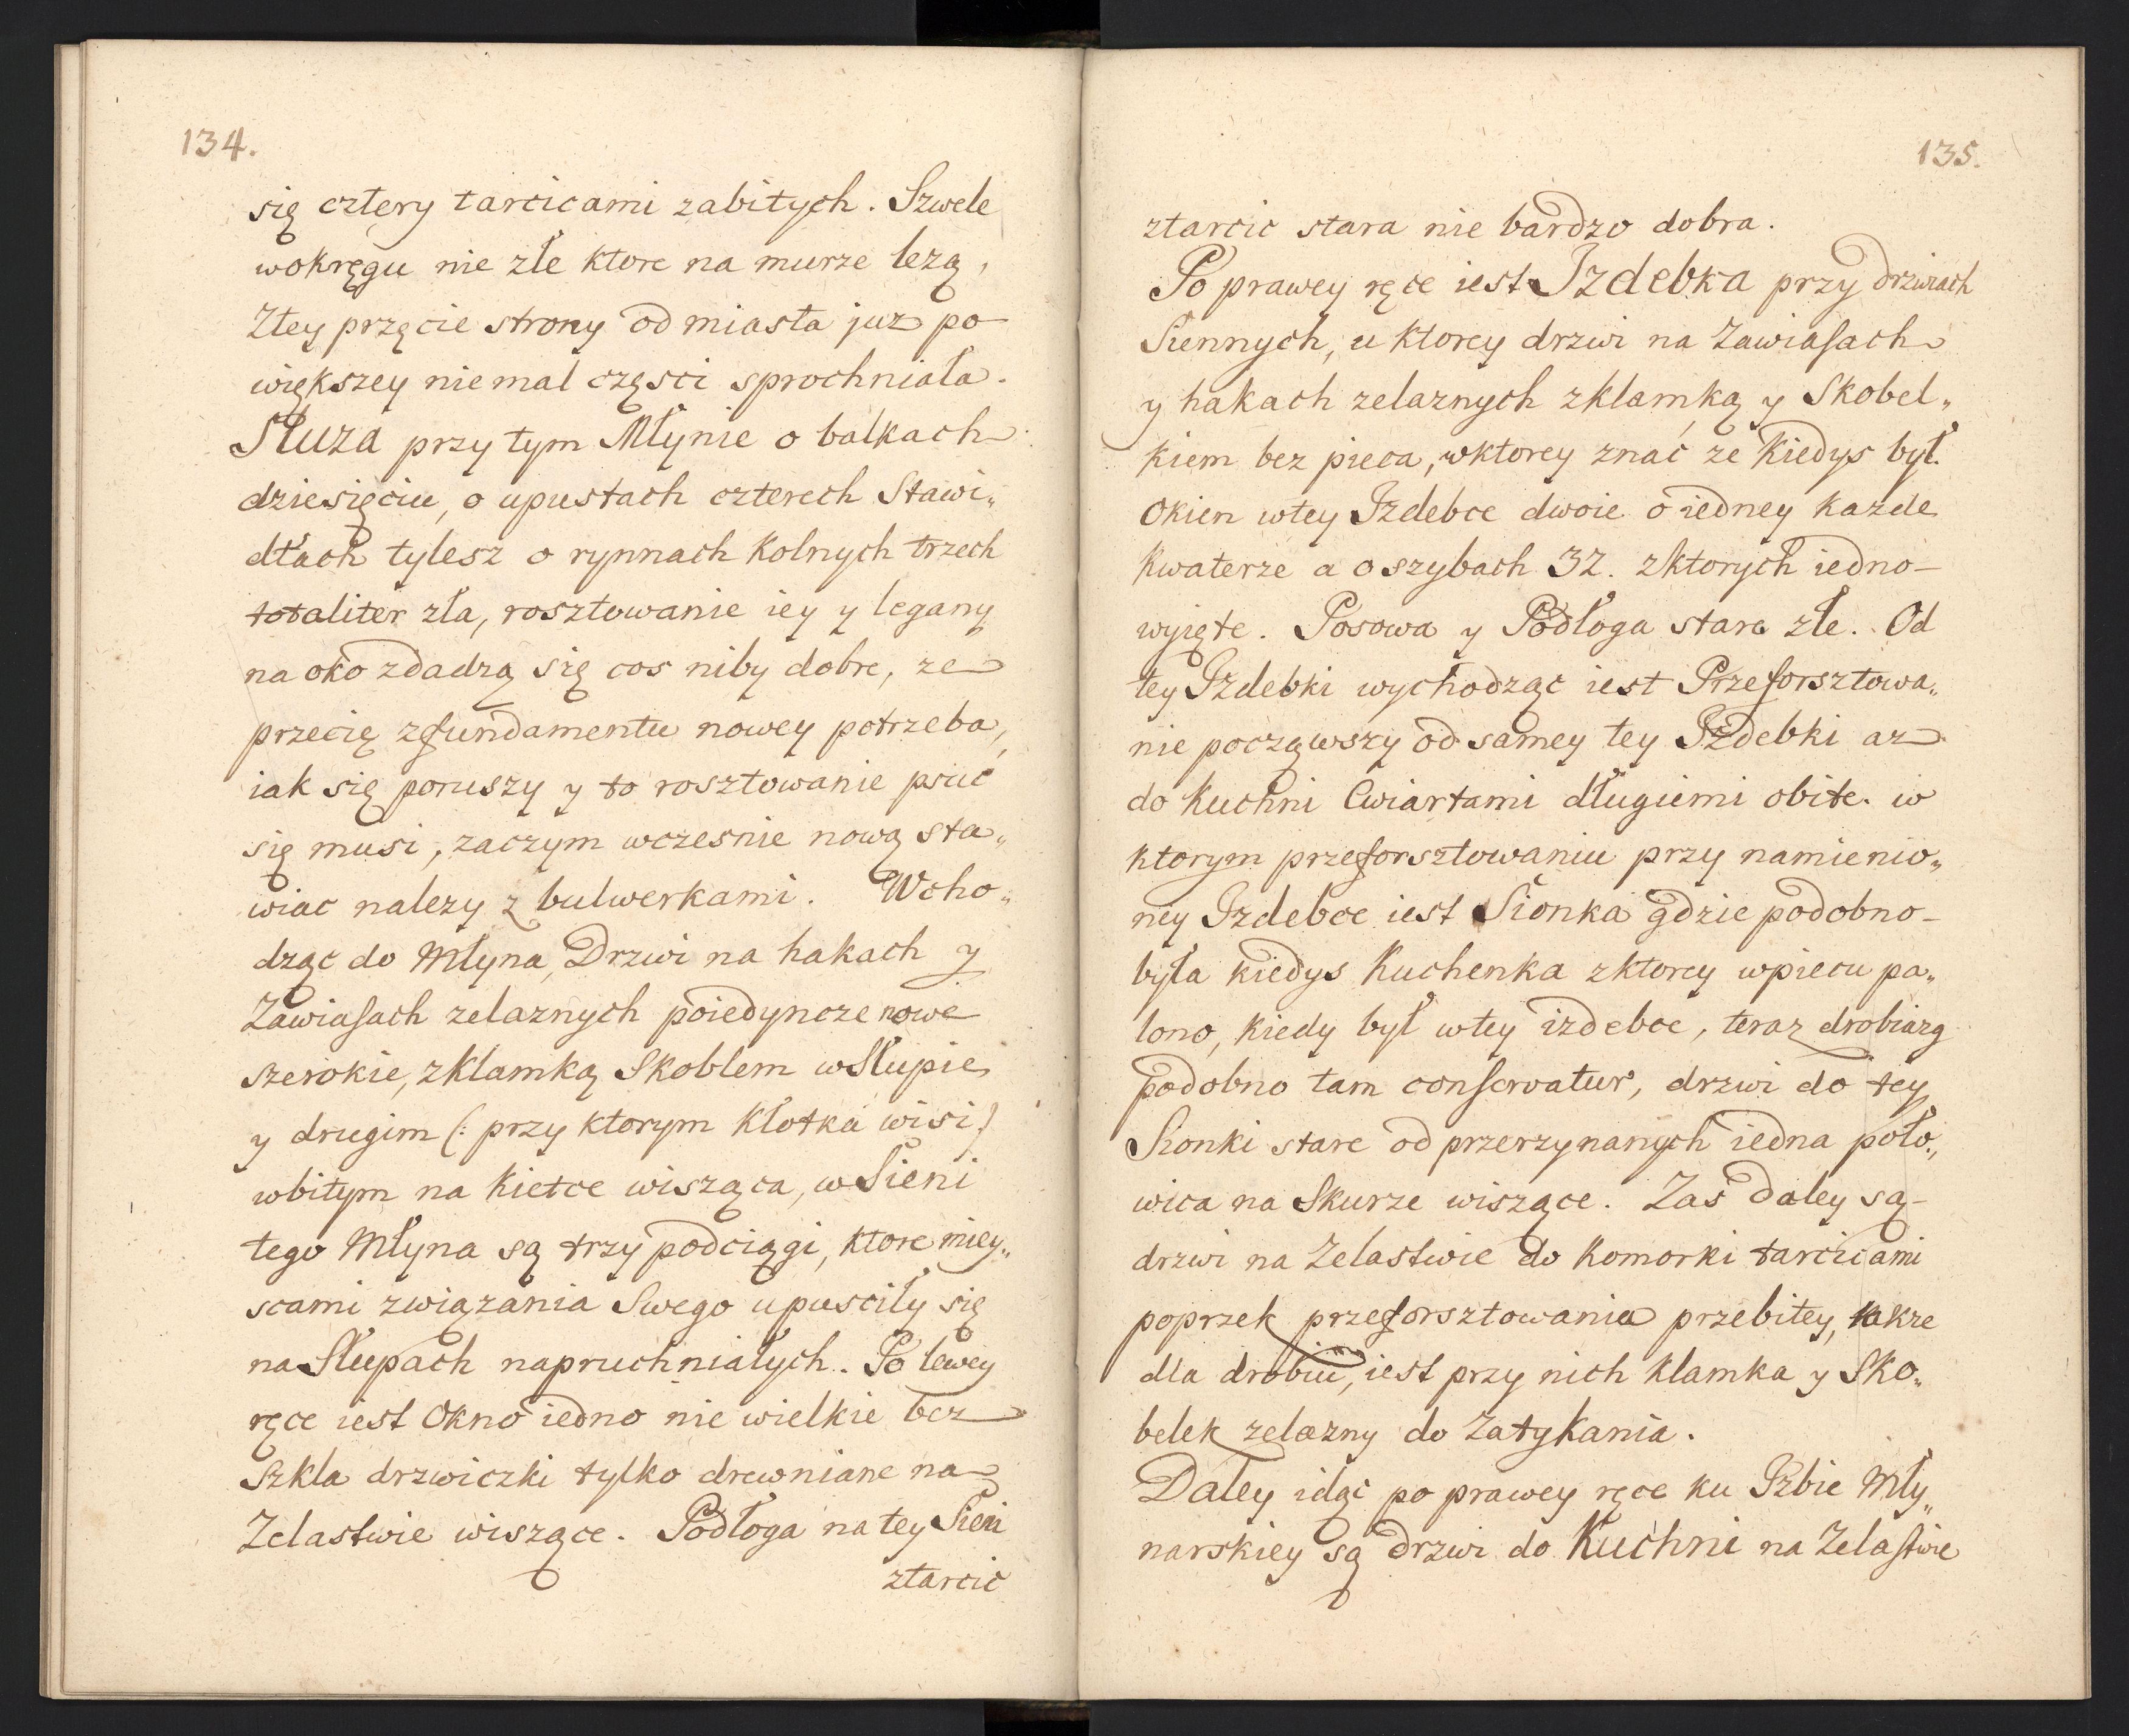 134.
się cztery tarcicami zabitych. Szwele
wokręgu nie złe ktore na murze lezą,
Ztey przęcie strony od miasta juz po
większey niemal części sprochniała.
Słuza przy tym Młynie o balkach
dziesięciu, o upustach czterech Stawi„
dłach tylesz o rynnach Kolnych trzech
totaliter zła, rosztowanie iey y legany
na oko zdadzą się cos niby dobre, ze
przecię zfundamentu nowey potrzeba,
iak się poruszy y to rosztowanie psuć
się musi, zaczym wczesnie nową sta„
wiac nalezy z bulwerkami. Wcho„
dząc do Młyna, Drzwi na hakach y
Zawiasach zelaznych poiedyncze nowe
szerokie, zklamką Skoblem wSłupie
y drugim (: przy ktorym Kłotka wisi :)
wbitym na Kietce wisząca, w Sieni
tego Młyna są trzy podciągi, ktore miey„
scami związania Swego upusciły się
na Słupach napruchniałych. Po lewey
ręce iest Okno iedno nie wielkie bez
Szkla drzwiczki tylko drewniane na
Zelastwie wiszące. Podłoga na tey Sieni
ztarcic
135.
ztarcic stara nie bardzo dobra.
Po prawey ręce iest Izdebka przy drzwiach
Siennych, u ktorey drzwi na Zawiasach
y hakach zelaznych zklamką y Skobel„
kiem bez pieca, wktorey znać ze Kiedys był.
Okien wtey Izdebce dwoie o iedney Kazde
Kwaterze a o szybach 32. zktorych iedno
wyięte. Posowa y Podłoga stare złe. Od
tey Izdebki wychodząc iest Przeforsztowa„
nie począwszy od samey tey Izdebki az
do Kuchni Cwiartami długiemi obite. w
ktorym przeforsztowaniu przy namienio„
ney Izdebce iest Sionka gdzie podobno
była kiedys Kuchenka zktorey wpiecu pa„
lono, kiedy był wtey izdebce, teraz drobiazg
podobno tam conservatur, drzwi do tey
Sionki stare od przerzynanych iedna poło„
wica na Skurze wiszące. Zas daley są
drzwi na Zelastwie do Komorki tarcicami
poprzek przeforsztowania przebitey, takze
dla drobiu, iest przy nich klamka y Sko„
belek zelazny do Zatykania.
Daley idąc po prawey ręce ku Izbie Mły„
narskiey są drzwi do Kuchni na Zelastwie